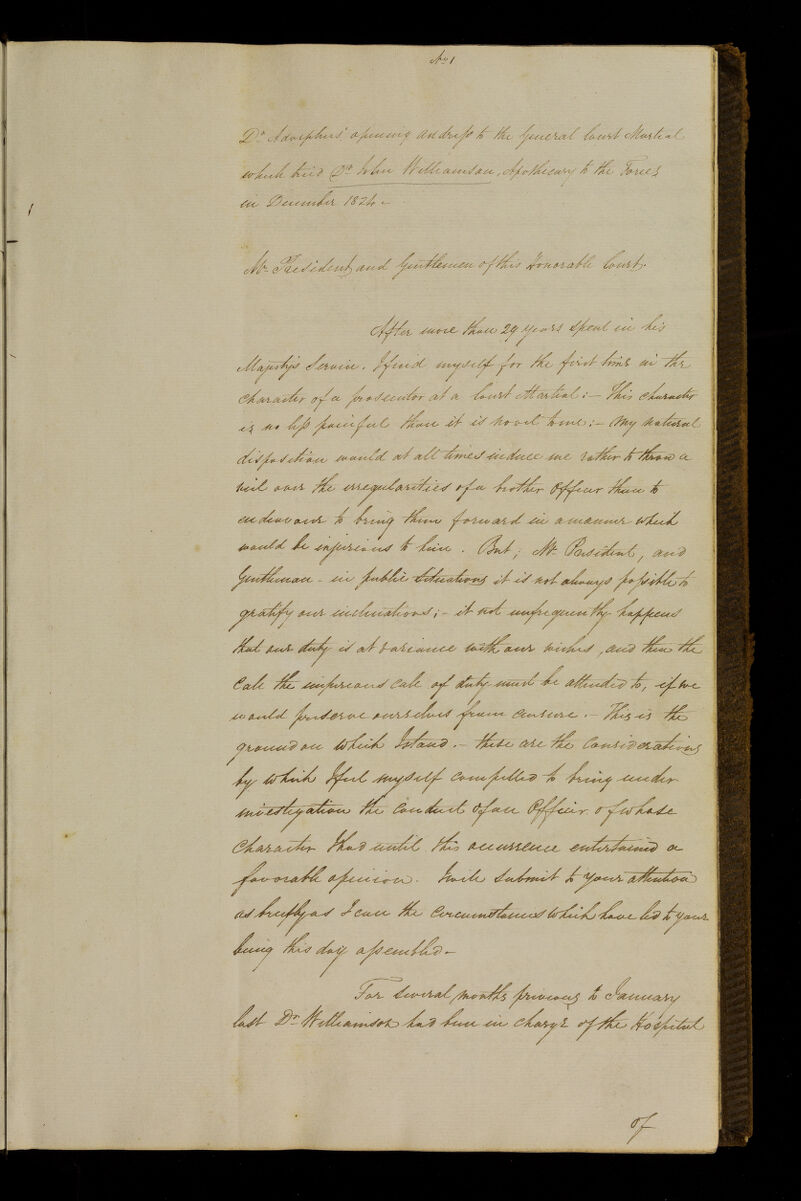 No 1
Dr Adolphus' opening address to the General Court Martial
which tried Dr John Williamson, Apothecary to the Forces
in December 1824 -
Mr President, and Gentlemen of this Honorable Court.
After more than 29 years spent in his
Majesty's Service. I find myself for the first time in the
character of a prosecutor at a Court Martial :- This character
is no less painful than it is novel to me :- My natural
disposition would at all times induce me rather to throw a
veil over the irregularities of a brother Officer than to
endeavour to bring them forward in a manner which
would be injurious to him. But; Mr President, and
Gentleman - in public situations it is not always possible to
gratify our inclinations ;- it not unfrequently happens
that our duty is at variance with our wishes, and then the
call the imperious call of duty must be attended to, if we
would preserve ourselves from censure. - This is the
ground on which I stand. - these are the considerations
by which I feel myself compelled to bring under
investigation the conduct of an Officer of whose
character I had until this occurrence entertained a
favorable opinion. I will submit to your attention
as briefly as I can the circumstances which have led to your
being this day assembled -
For several months previous to January
last Dr Williamson had been in charge of the Hospital
of